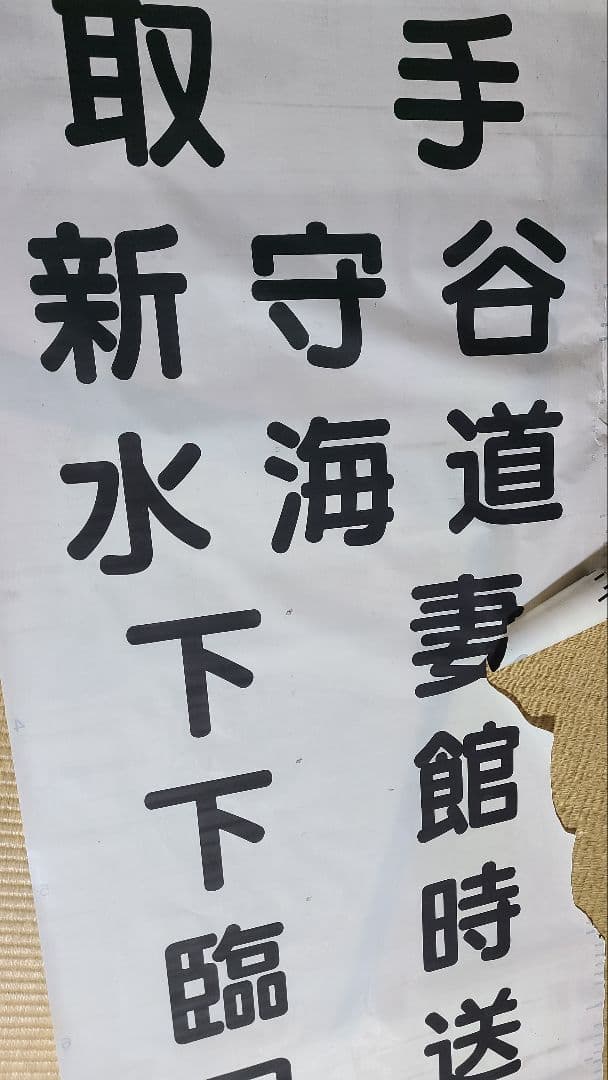 取手
新守谷
水海道
下妻
下館
臨時
送